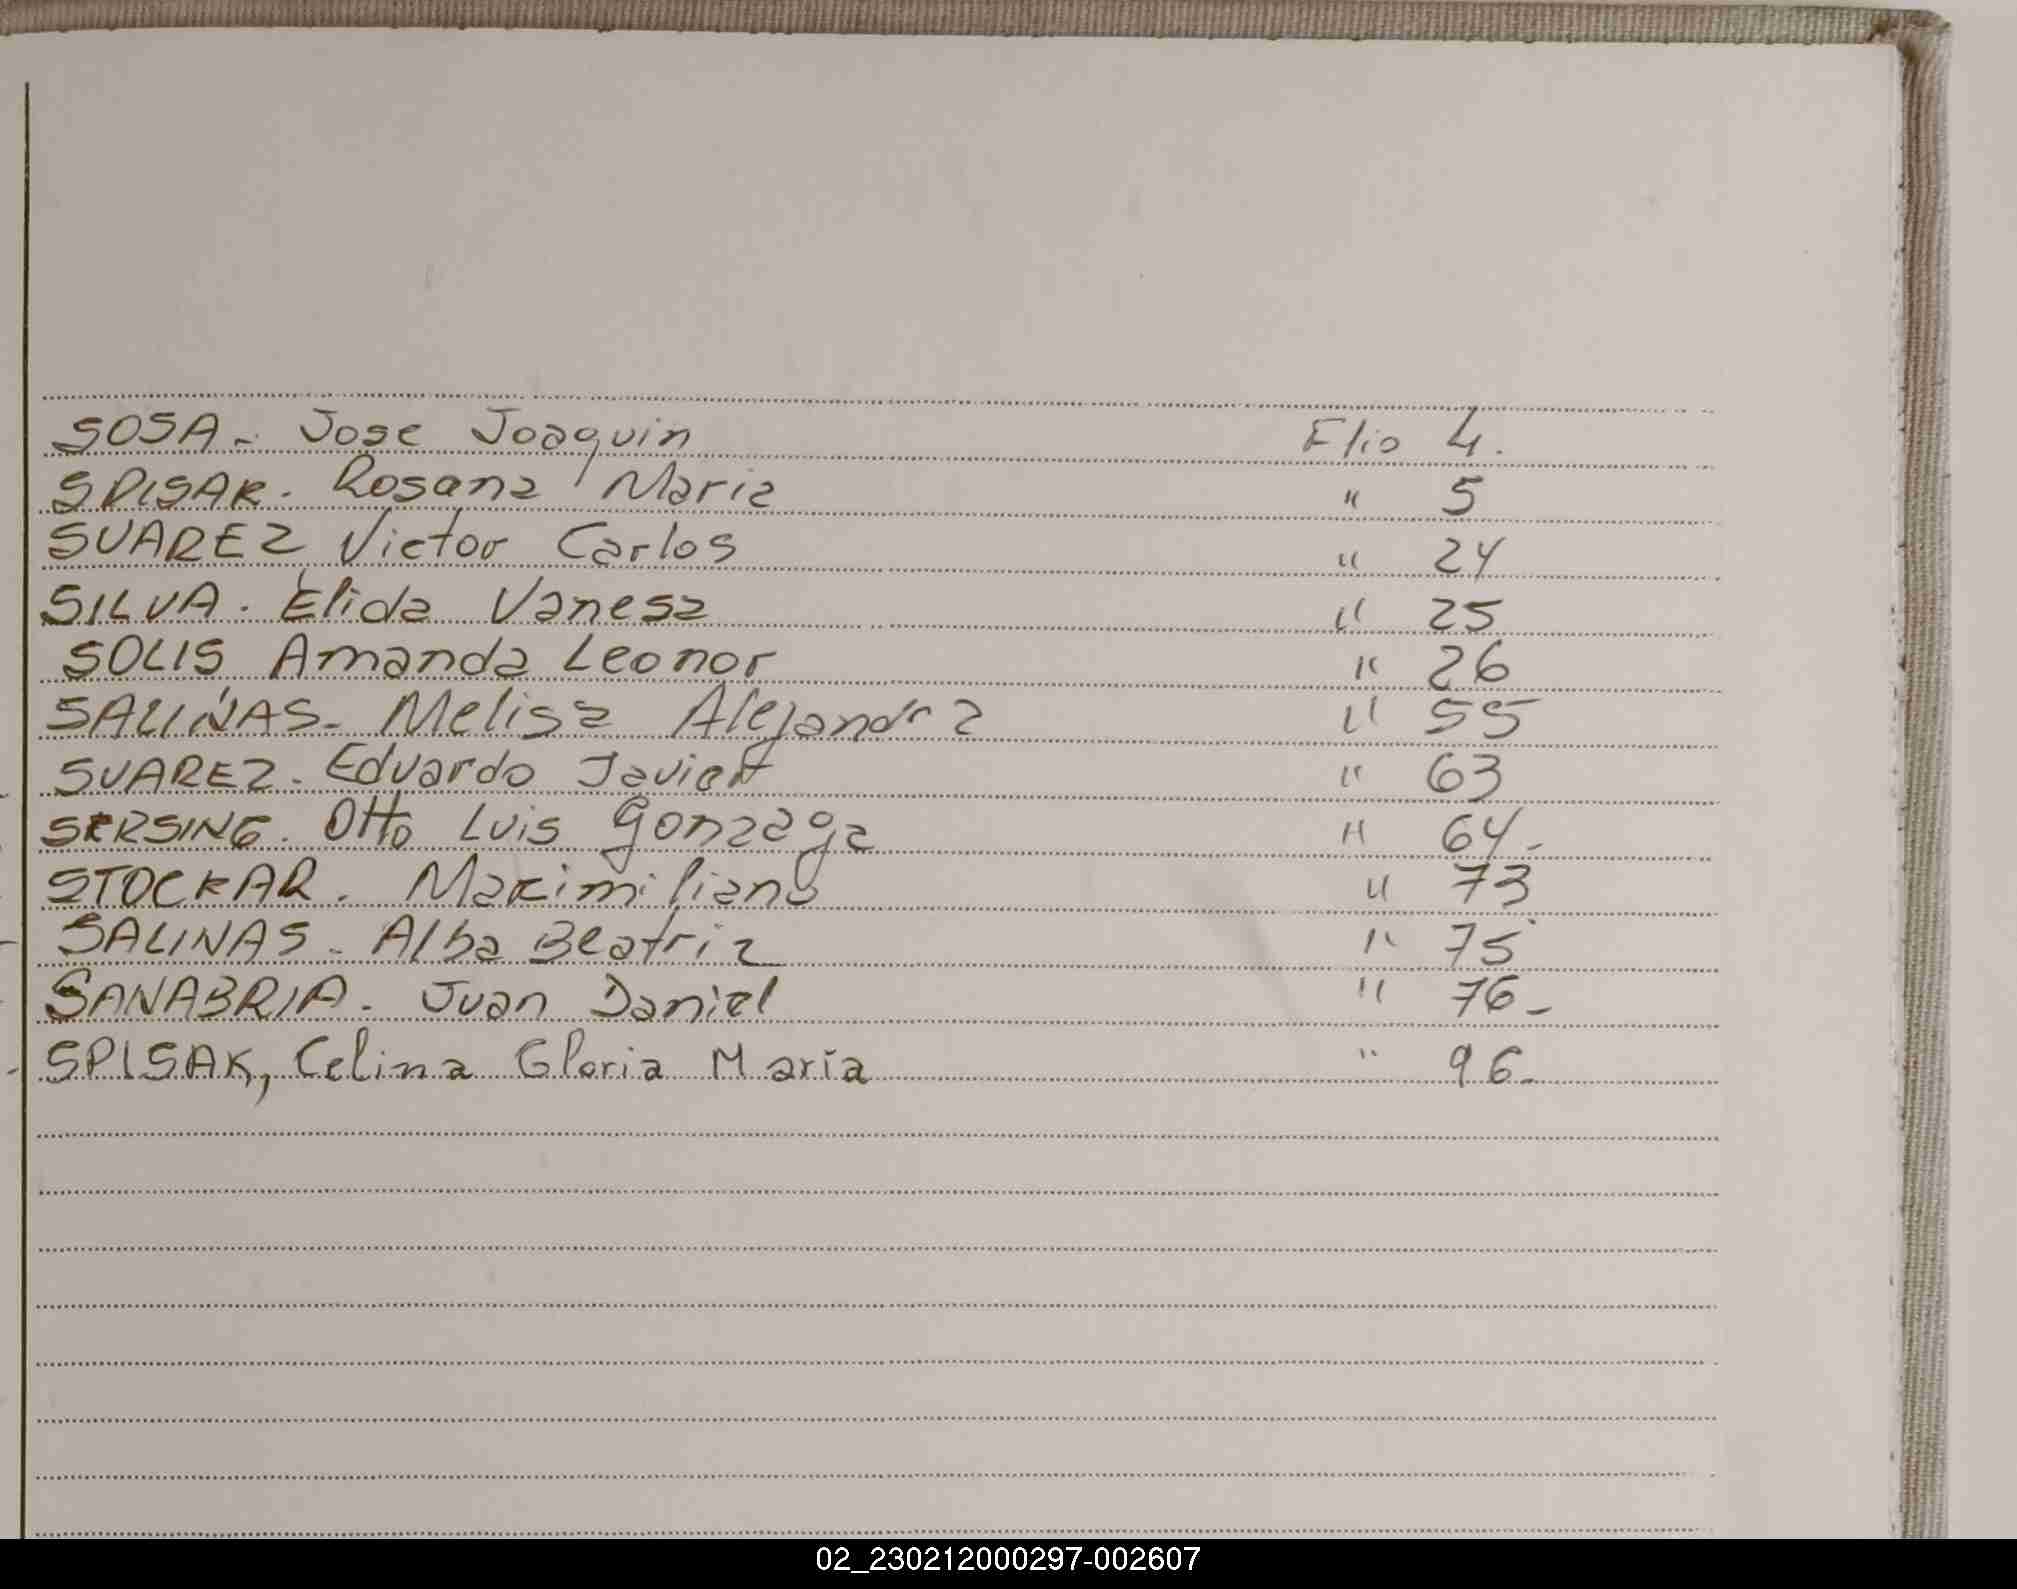 SOSA - Jose Joaquin Flio 4.
SPISAK. Rosana Maria " 5
SUAREZ Victor Carlos " 24
SILVA. Elida Vanesa " 25
SOLIS Amanda Leonor " 26
SALINAS - Melisa Alejandra " 55
SUAREZ. Eduardo Javier " 63
SERSING. Otto Luis Gonzaga " 64-
STOCKAR. Maximiliano " 73
SALINAS - Alba Beatriz " 75
SANABRIA - Juan Daniel " 76-
SPISAK, Celina Gloria María " 96-
02_230212000297-002607